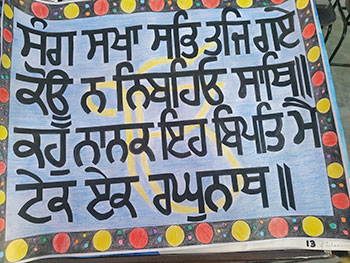 ਸੰਗ ਸਖਾ ਸਭਿ ਤਜਿ ਗਏ
ਕੋਊ ਨ ਨਿਬਹਿਓ ਸਾਥਿ॥
ਕਹੁ ਨਾਨਕ ਇਹ ਬਿਪਤਿ ਮੈ
ਟੇਕ ਏਕ ਰਘੁਨਾਥ॥
13